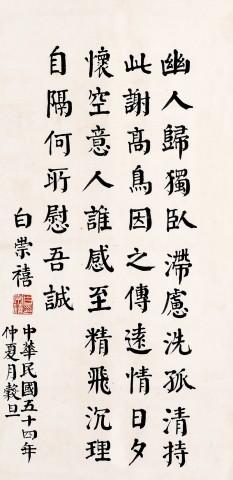 幽人歸獨臥滯慮洗孤清持
此謝高鳥因之傳遠情日夕
懷空意人誰感至精飛沉理
自隔何所慰吾誠
白崇禧
中華民國五十四年
仲夏月穀旦